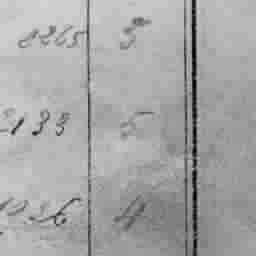 8265 5
2133 5
1236 4